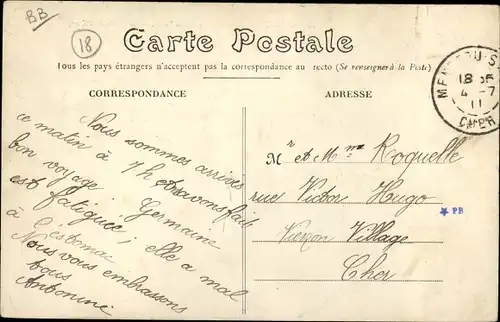 BB
18
Carte Postale
Tous les pays étrangers n'acceptent pas la correspondance au recto (Se renseigner à la Poste)
CORRESPONDANCE
ADRESSE
MENETOU-S
18 15
4 -7
11
CHER
Nous sommes arrivés
ce matin à 7h et avons fait
bon voyage. Germaine
est fatiguée; elle a mal
à l'estomac
Nous vous embrassons
tous
Antonine
Mr et Mme Roquelle
rue Victor Hugo
Vierzon Village
Cher
PB